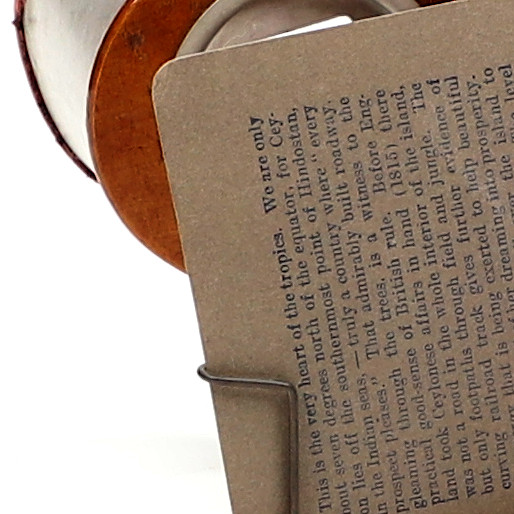 This is the very heart of the tropics. We are only
about seven degrees north of the equator, for Cey-
lon lies off the southernmost point of Hindostan,
in the Indian seas,—truly a country where "every
prospect pleases." That admirably built roadway,
gleaming through the trees, is a witness to the
practical good-sense of British rule. Before Eng-
land took Ceylonese affairs in hand (1815) there
was not a road in the whole interior of the island,
but only footpaths through field and jungle. The
railroad track gives further evidence of
curving being exerted to help beautiful
that is dreaming into prosperity.
her the island to
level